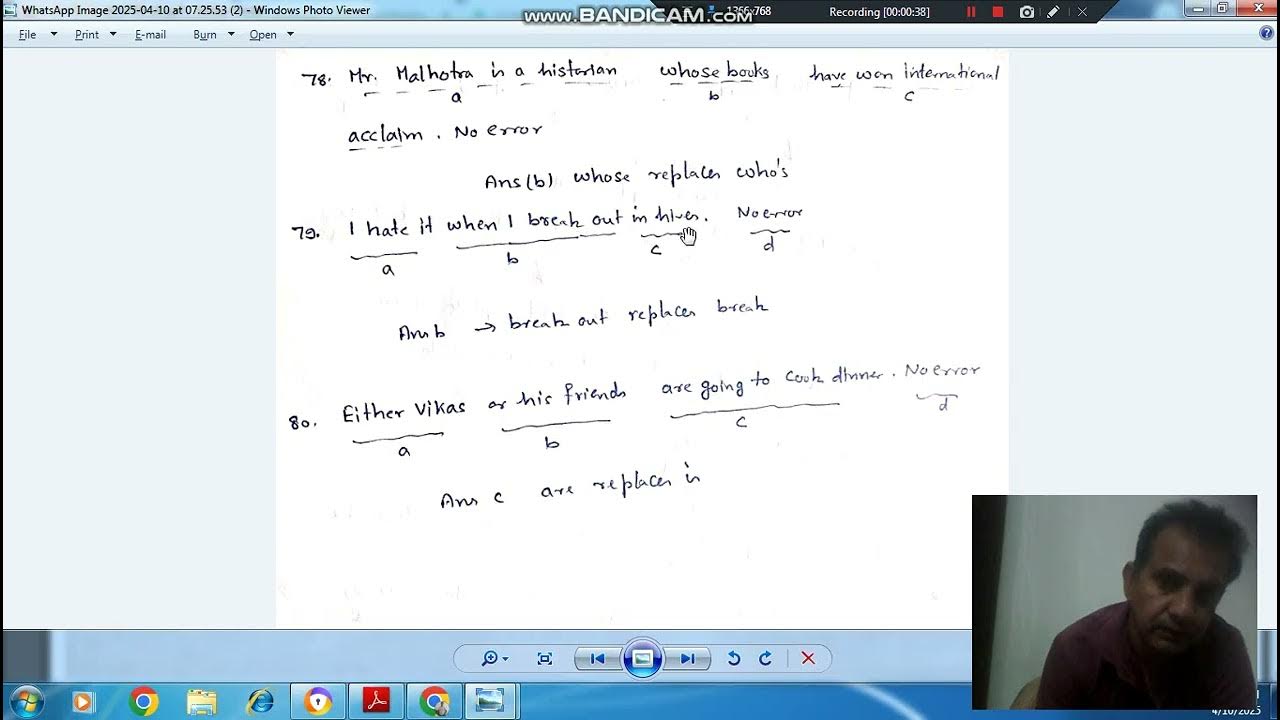 WhatsApp Image 2025-04-10 at 07.25.53 (2) - Windows Photo Viewer
www.BANDICAM.com
1366x768
Recording [00:00:38]
File Print E-mail Burn Open
78. Mr. Malhotra is a historian whose books have won international
a b c
acclaim. No error
Ans (b) whose replaces who's
79. I hate it when I break out in hives. No error
a b c d
Ans b → break out replaces break
80. Either Vikas or his friends are going to cook dinner. No error
a b c d
Ans c are replaces is
4/10/2025